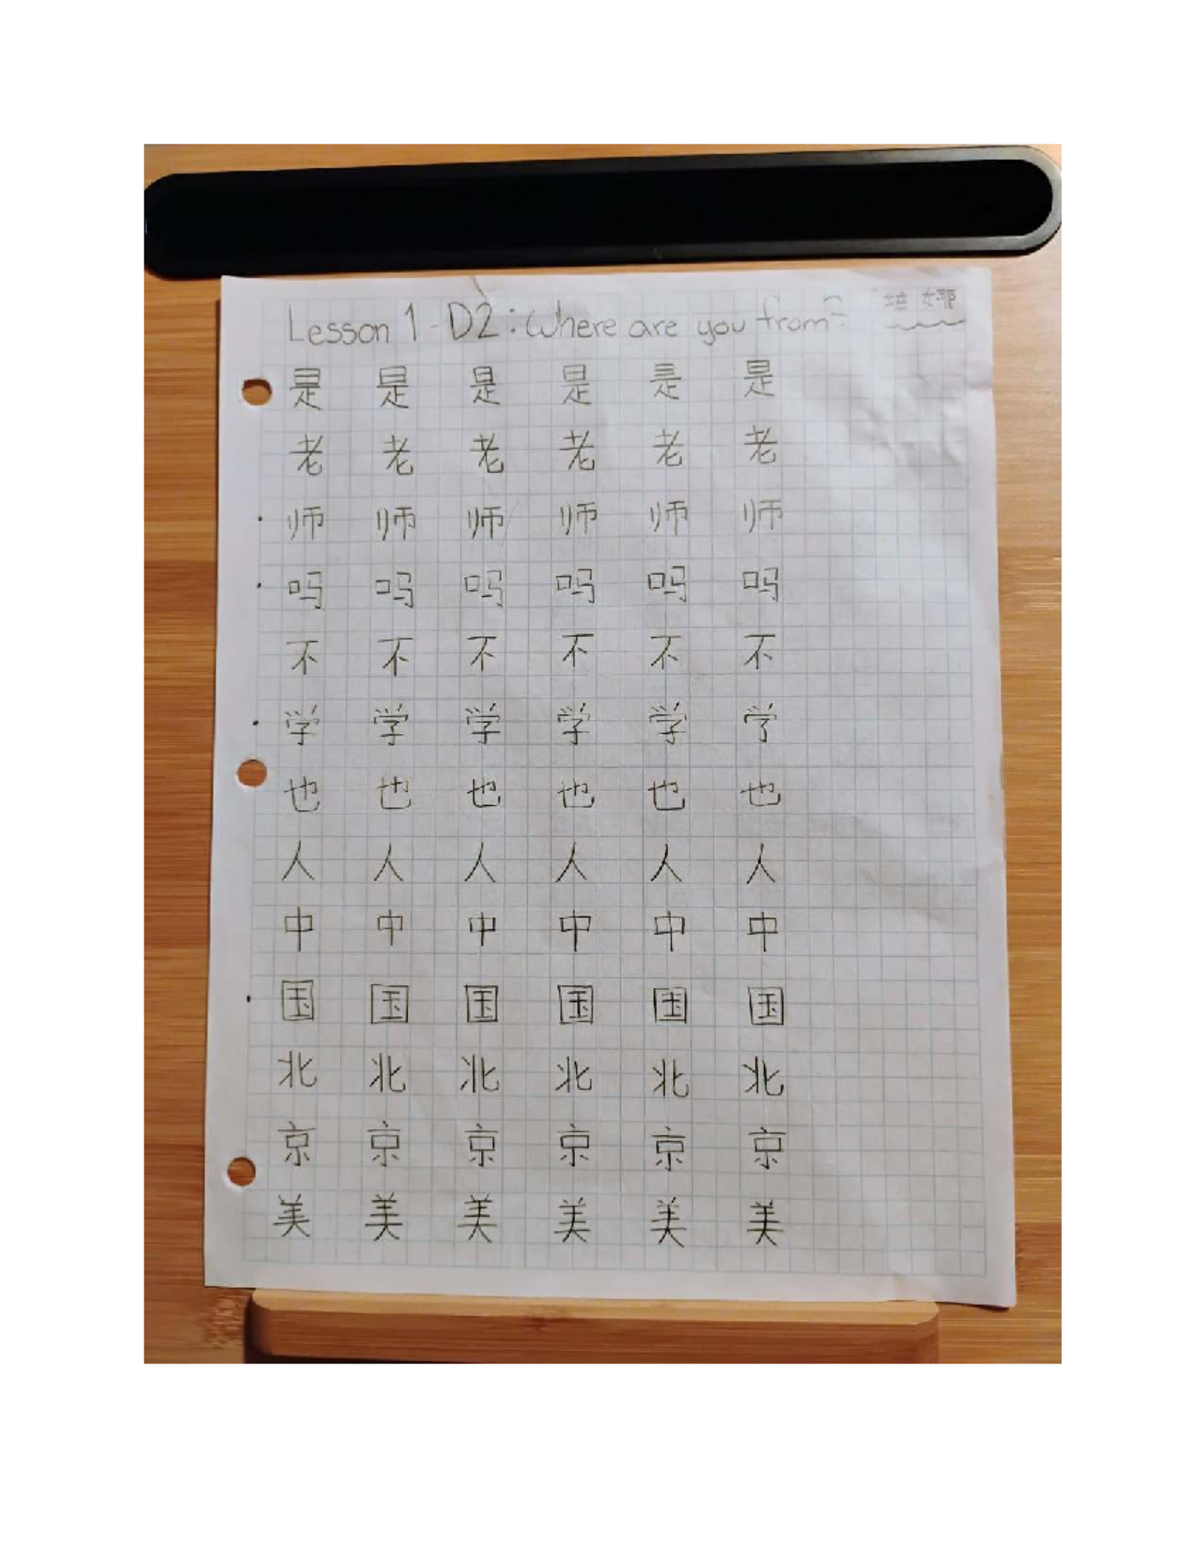 Lesson 1 - D2: Where are you from? 培娜
是 是 是 是 是 是
老 老 老 老 老 老
师 师 师 师 师 师
吗 吗 吗 吗 吗 吗
不 不 不 不 不 不
学 学 学 学 学 学
也 也 也 也 也 也
人 人 人 人 人 人
中 中 中 中 中 中
国 国 国 国 国 国
北 北 北 北 北 北
京 京 京 京 京 京
美 美 美 美 美 美